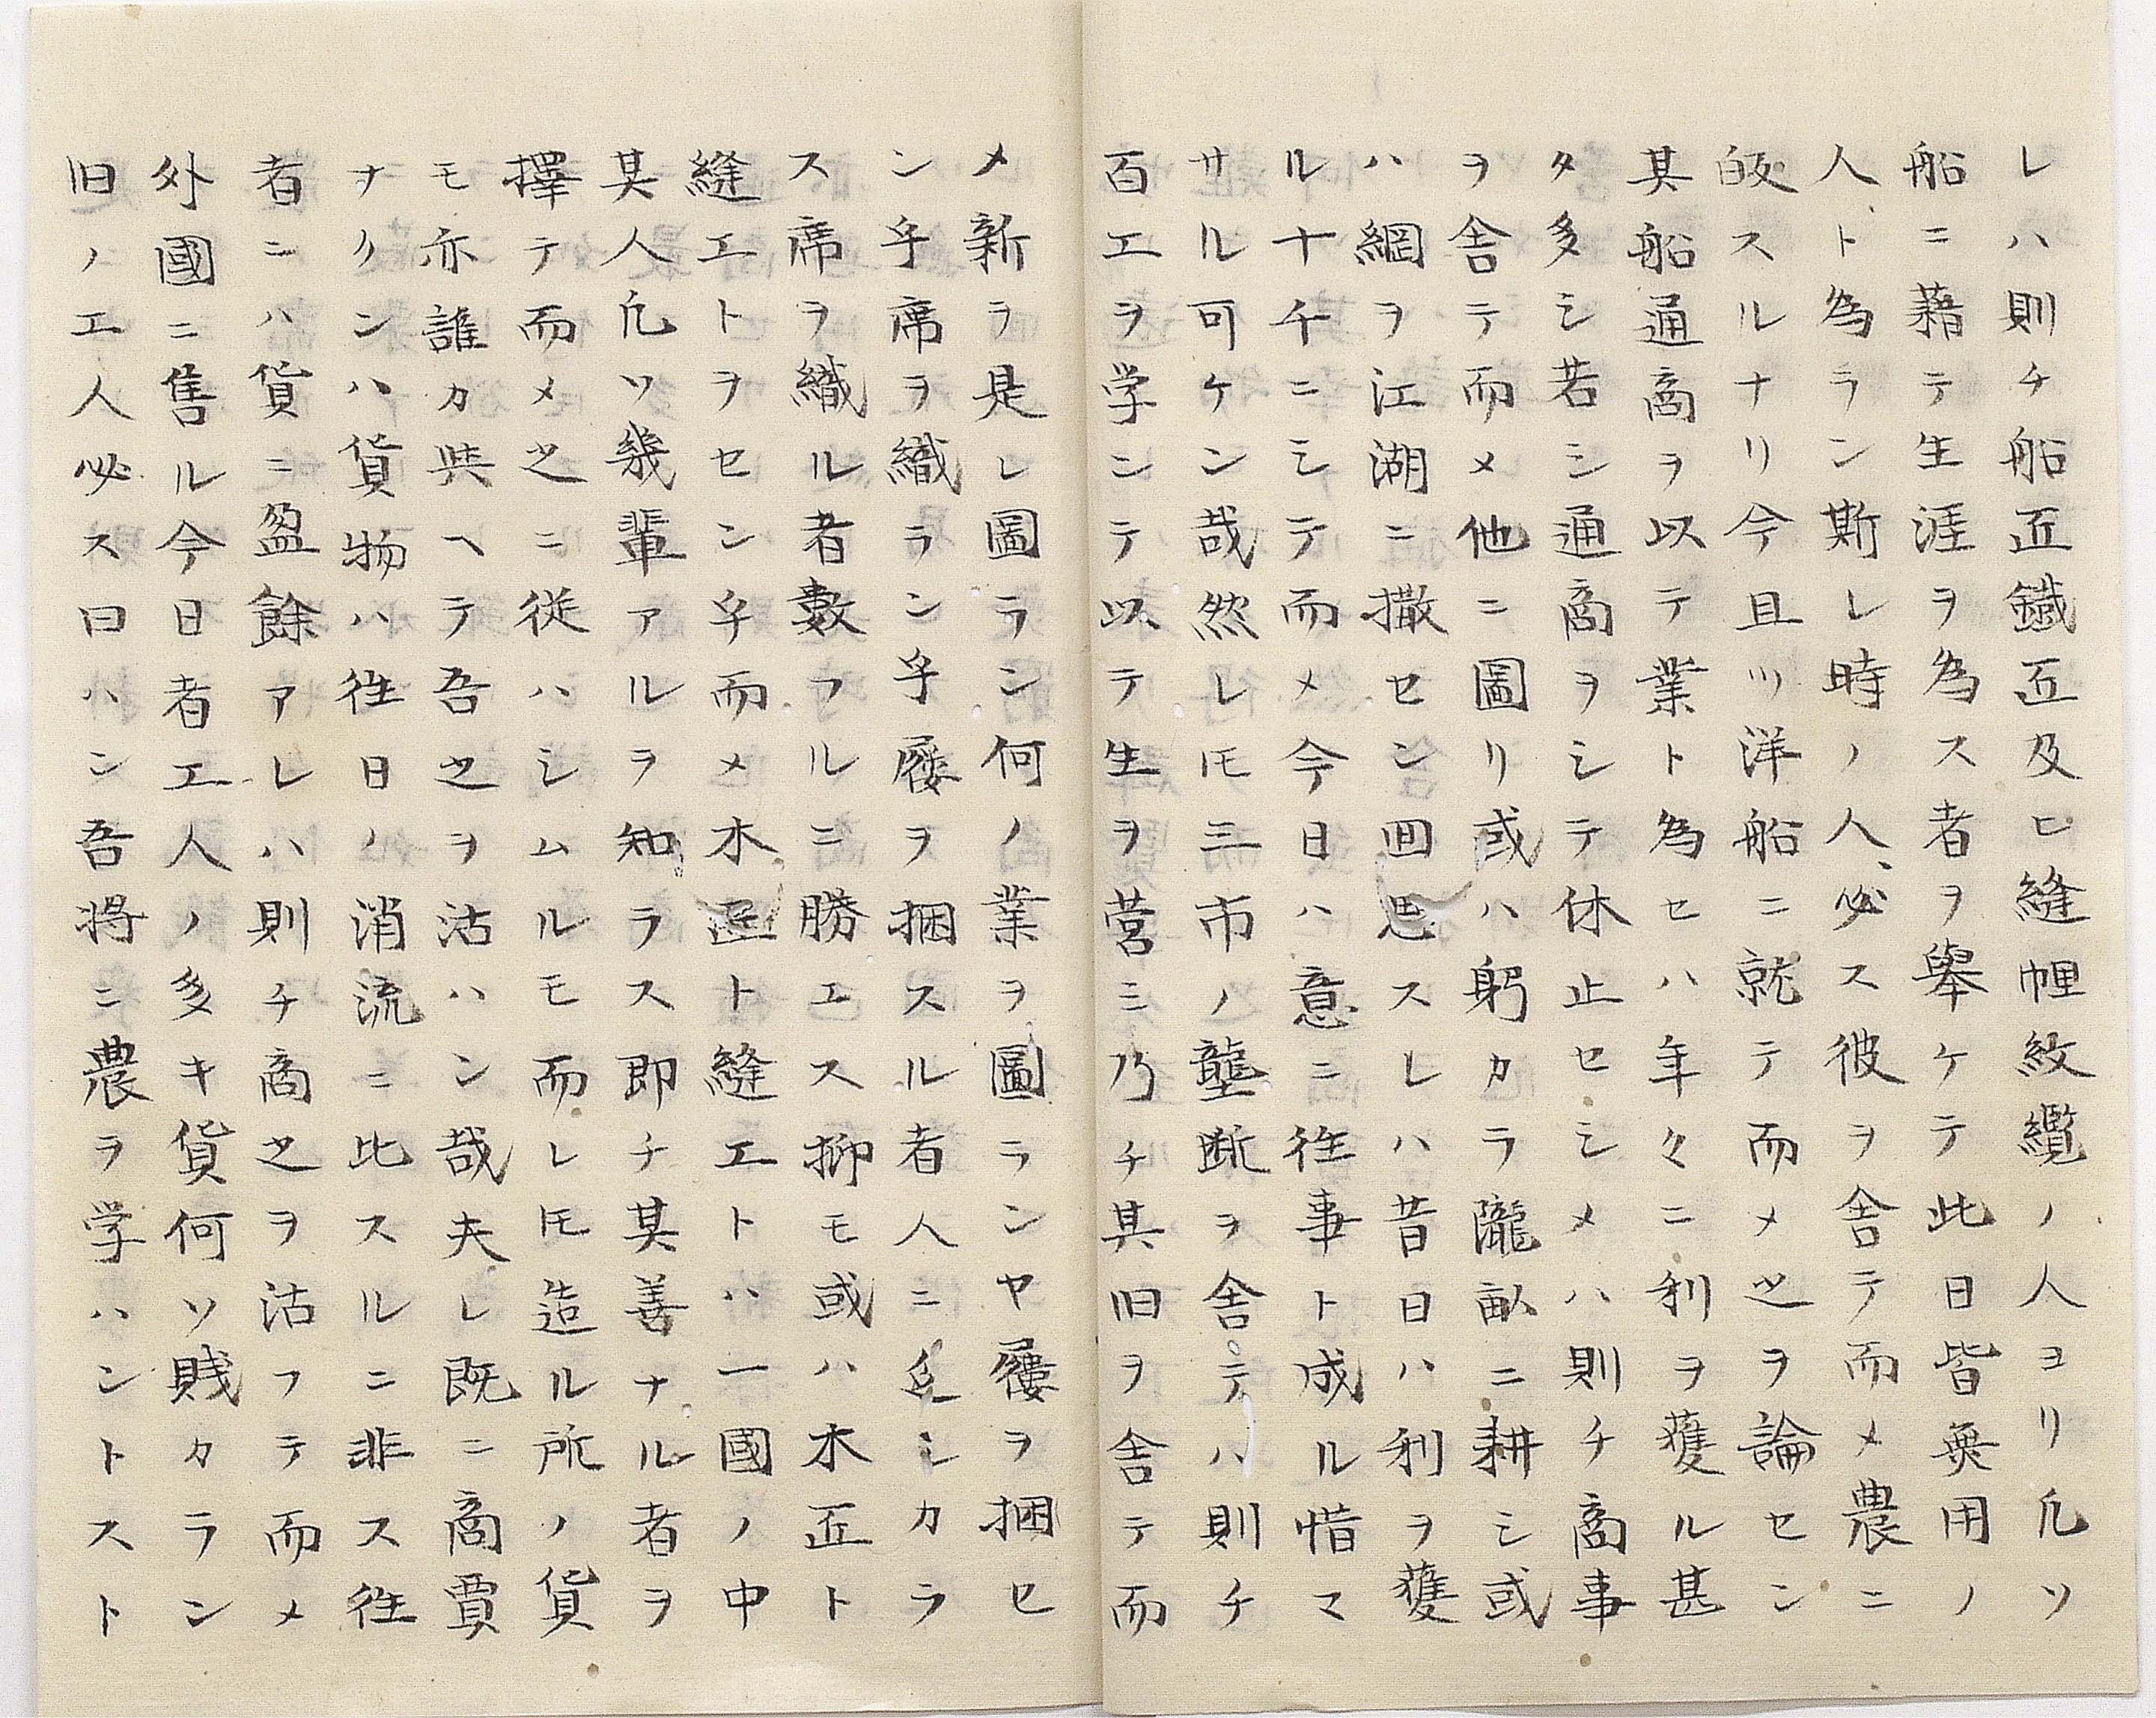 レハ則チ船匠鐵匠及ヒ縫帷紋纜ノ人ヨリ凡ソ
船ニ藉テ生涯ヲ為ス者ヲ舉ケテ此日皆無用ノ
人ト為ラン斯レ時ノ人必ス彼ヲ舍テ而メ農ニ
皈スルナリ今且ツ洋船ニ就テ而メ之ヲ論セン
其船通商ヲ以テ業ト為セハ年々ニ利ヲ獲ル甚
タ多シ若シ通商ヲシテ休止セシメハ則チ商事
ヲ舍テ而メ他ニ圖リ或ハ躬カラ隴畝ニ耕シ或
ハ網ヲ江湖ニ撒セン回思スレハ昔日ハ利ヲ獲
ル十千ニシテ而メ今日ハ意ニ往事ト成ル惜マ
サル可ケン哉然レ𪜈三市ノ壟断ヲ舍テハ則チ
百工ヲ学ンテ以テ生ヲ営ミ乃チ其旧ヲ舍テ而
メ新ヲ是レ圖ラン何ノ業ヲ圖ランヤ屨ヲ捆セ
ン乎席ヲ織ラン乎屨ヲ捆スル者人ニ乏シカラ
ス席ヲ織ル者數フルニ勝エス抑モ或ハ木匠ト
縫工トヲセン乎而メ木匠ト縫工トハ一國ノ中
其人凡ソ幾輩アルヲ知ラス即チ其善ナル者ヲ
擇テ而メ之ニ従ハシムルモ而レ𪜈造ル所ノ貨
モ亦誰カ與ヘテ吾之ヲ沽ハン哉夫レ既ニ商賈
ナクンハ貨物ハ往日ノ消流ニ比スルニ非ス往
者ニハ貨ニ盈餘アレハ則チ商之ヲ沽フテ而メ
外國ニ售ル今日者工人ノ多キ貨何ソ賎カラン
旧ノ工人必ス曰ハン吾将ニ農ヲ学ハントスト